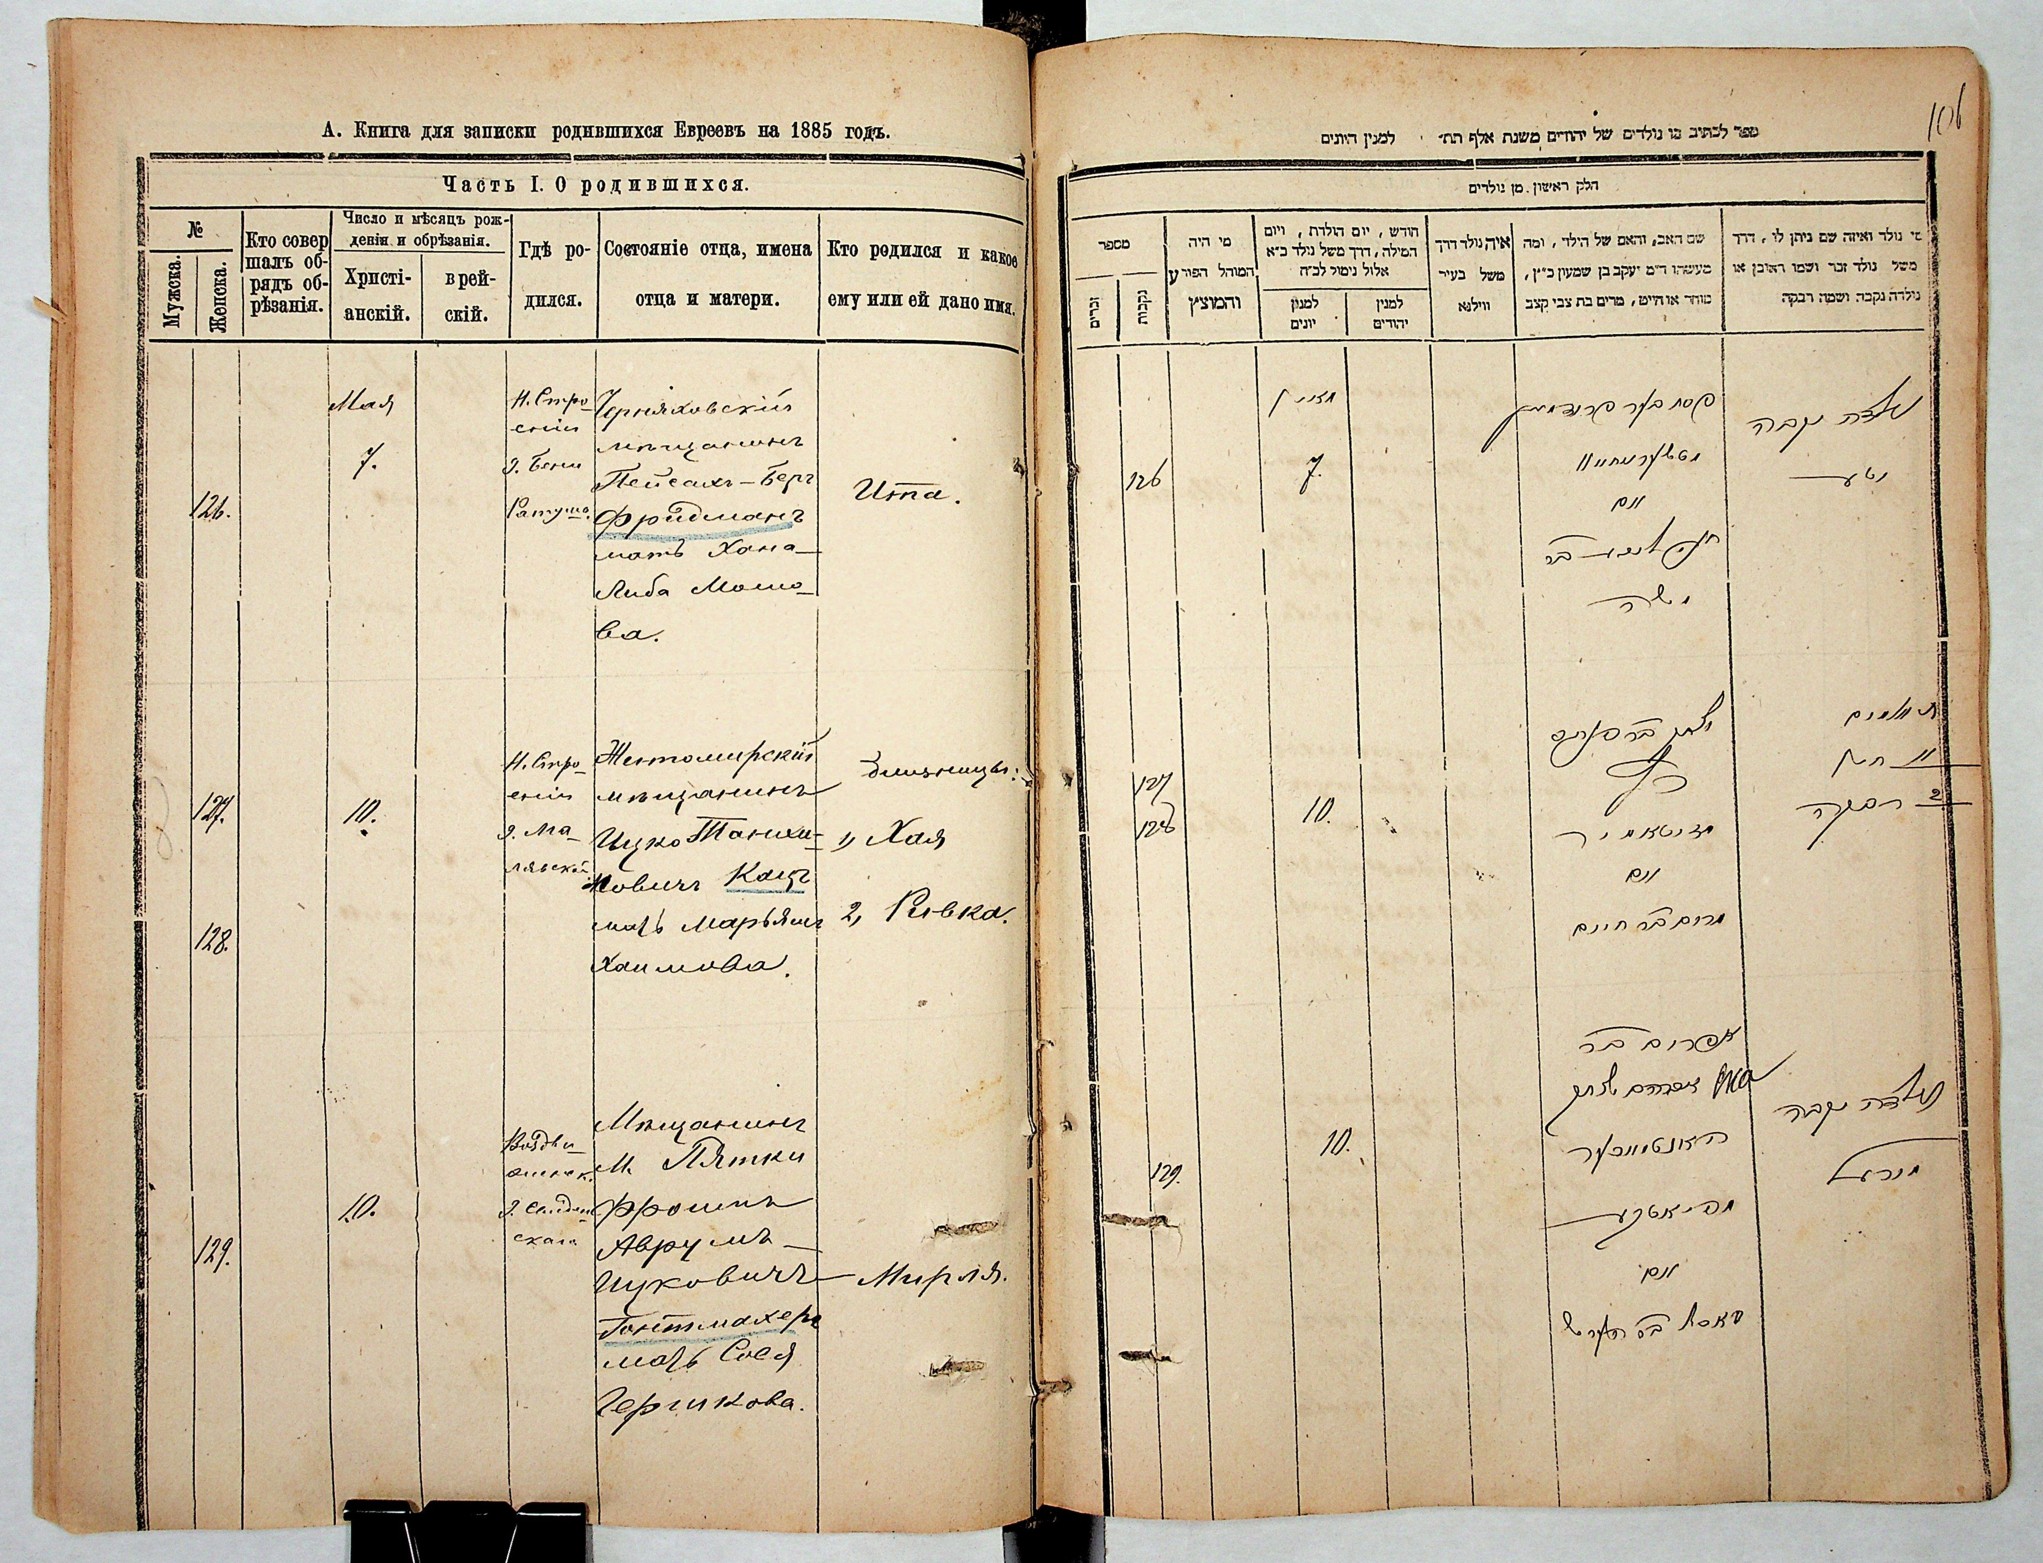 А. Книга для записки родившихся Евреевъ на 1885 годъ.
Часть I. О родившихся.
№
Мужска.
Женска.
Кто совер
шалъ об-
рядъ об-
рѣзанія.
Число и мѣсяцъ рож-
денія и обрѣзанія.
Христі-
анскій.
врей-
скій.
Гдѣ ро-
дился.
Состояніе отца, имена
отца и матери.
Кто родился и какое
ему или ей дано имя.
126.
Мая
7.
Н. Стро-
еніи
д. Бени
Черняховскій
мѣщанинъ
Пейсахъ-Беръ
Фридманъ
мать Хана-
Либа Мошо-
ва.
Ита.
127.
128.
10.
Н. Стро-
еніи
д. Ма-
Житомирскій
мѣщанинъ
Ицко Танхи-
мовичъ Кацъ
мать Марьямъ
Хаимова.
Близницы:
1, Хая
2, Ривка.
129.
10.
Воздви-
Мѣщанинъ
м. Пятки
Фроимъ
Аврумъ-
Ицковичъ
Гонтмахеръ
мать Сося
Гершкова.
Мирля.
106
ספר לכתיב בו נולדים של יהודים משנת אלף תת׳ למנין היונים
חלק ראשון. מן נולדים
מספר
זכרים
נקבות
מי היה
המוהל הפורע
והמוצץ
חודש, יום הולדת, ויום
המילה, דרך משל נולד כ״א
אלול נימול לכ״ח
למנין
יונים
למנין
יהודים
איה נולד דרך
משל בעיר
ווילנא
שם האב, והאם של הילד, ומה
מעשהו ד״מ יעקב בן שמעון כ״ץ,
סוחר או חייט, מרים בת צבי קצב
מי נולד ואיזה שם ניתן לו, דרך
משל נולד זכר ושמו ראובן או
נולדה נקבה ושמה רבקה
126
7.
פסח בער פרידמאן
ואם
משה
נולדה נקבה
יטע
127
128
10.
זיטאמיר
ואם
מרים בר חיים
תאומים
1 חיה
2 רבקה
129.
10.
אפרים בר
האנטמאכער
ואם
סאסל בר הערש
נולדה נקבה
מירעל